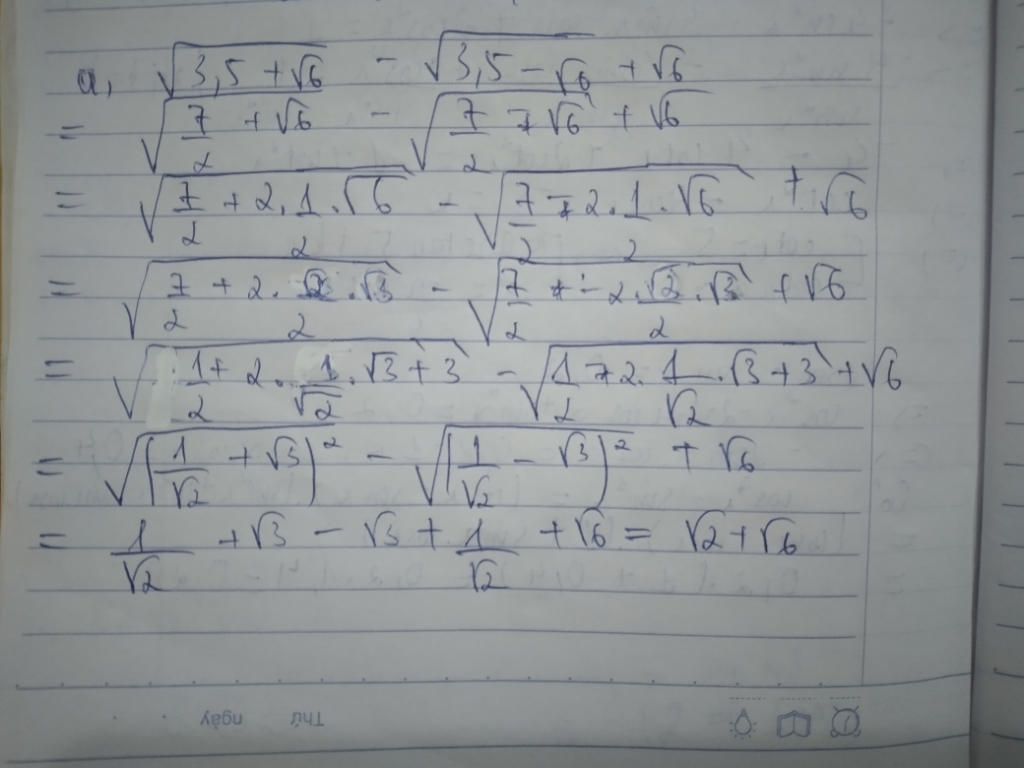 a, √(3,5 + √6) - √(3,5 - √6) + √6
= √(7/2 + √6) - √(7/2 - √6) + √6
= √(7/2 + 2.1/2.√6) - √(7/2 - 2.1/2.√6) + √6
= √(7/2 + 2.√2/2.√3) - √(7/2 - 2.√2/2.√3) + √6
= √(1/2 + 2.1/√2.√3 + 3) - √(1/2 - 2.1/√2.√3 + 3) + √6
= √((1/√2 + √3)²) - √((1/√2 - √3)²) + √6
= 1/√2 + √3 - √3 + 1/√2 + √6 = √2 + √6
Thứ ngày